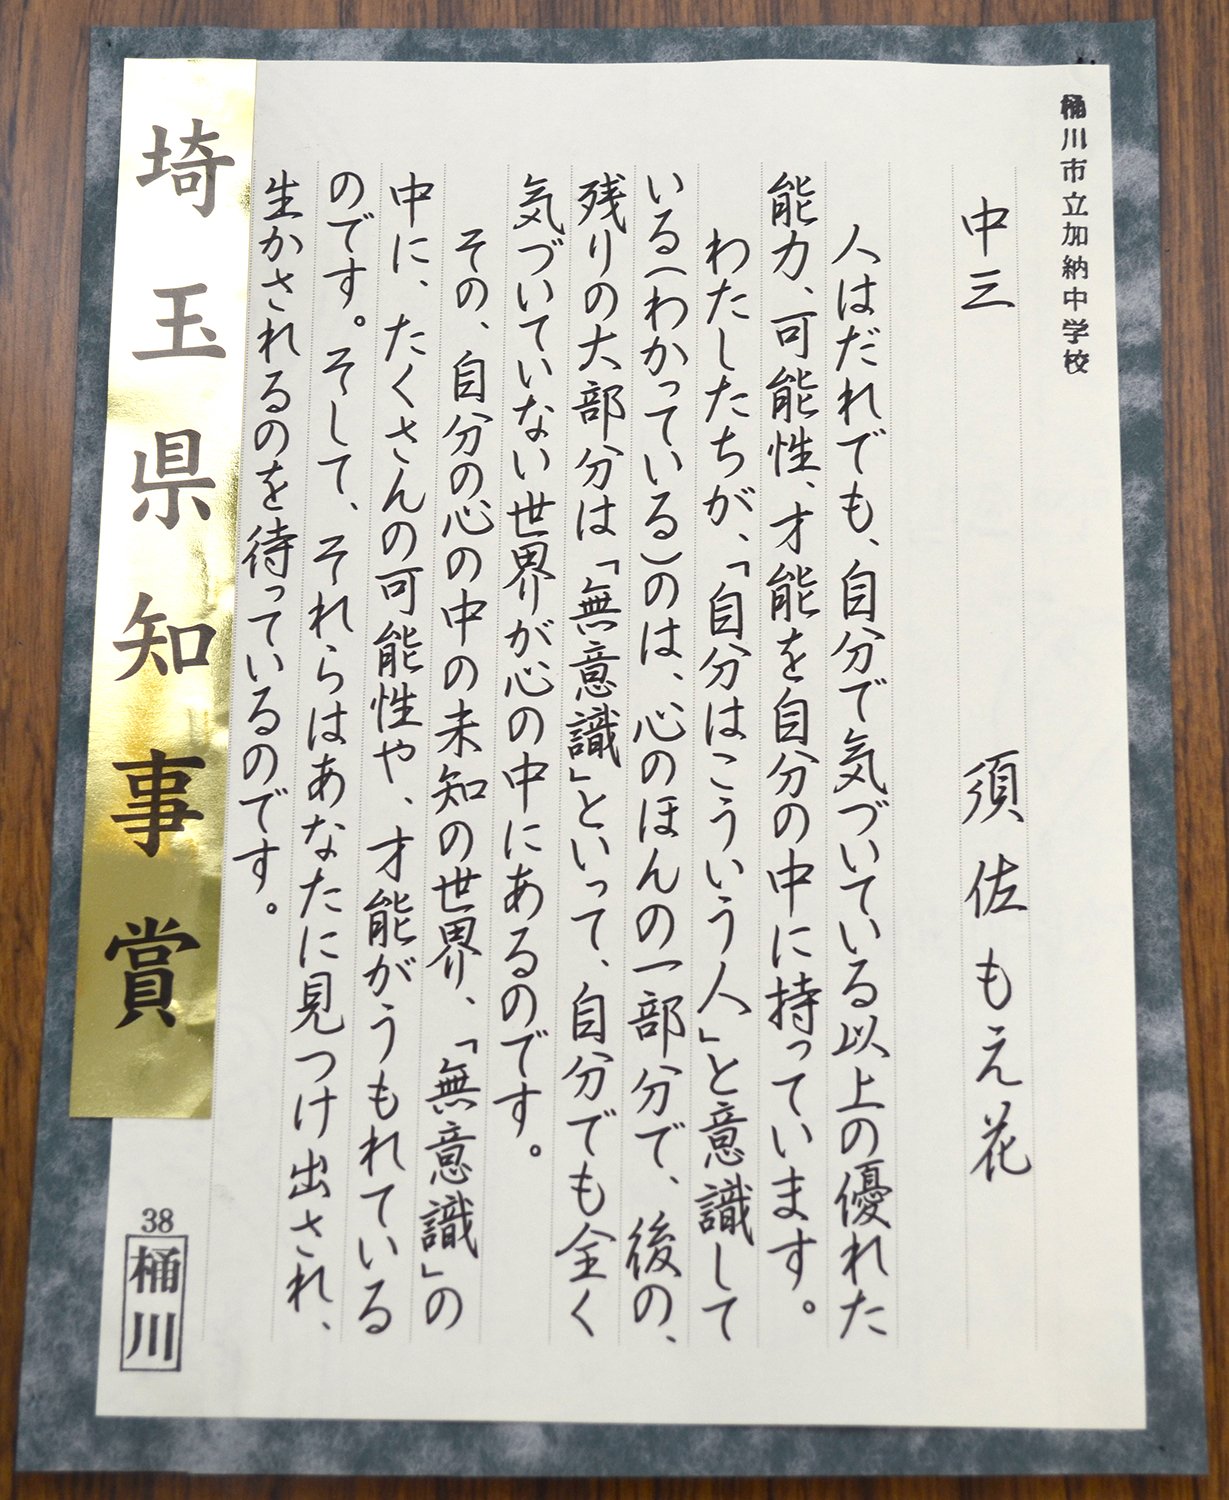 桶川市立加納中学校
中三 須佐もえ花
人はだれでも、自分で気づいている以上の優れた
能力、可能性、才能を自分の中に持っています。
わたしたちが、「自分はこういう人」と意識して
いる(わかっている)のは、心のほんの一部分で、後の、
残りの大部分は「無意識」といって、自分でも全く
気づいていない世界が心の中にあるのです。
その、自分の心の中の未知の世界、「無意識」の
中に、たくさんの可能性や、才能がうもれている
のです。そして、それらはあなたに見つけ出され、
生かされるのを待っているのです。
埼玉県知事賞
38
桶川